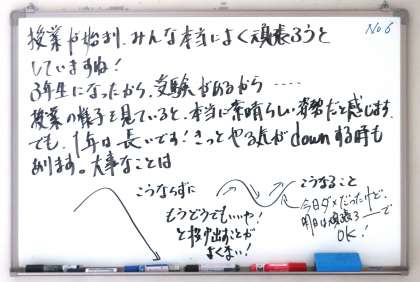 No 6
授業が始まり、みんな本当によく頑張ろうと
していますね!
3年生になったから、受験があるから……
授業の様子を見ていると、本当に素晴らしい姿勢だと感じます。
でも、1年は長いです!きっとやる気がdownする時も
あります。大事なことは
こうならずに
もうどうでもいいや!
と投げ出すことが
よくない!
こうなること
今日ダメだったけど、
明日は頑張ろーで
OK!